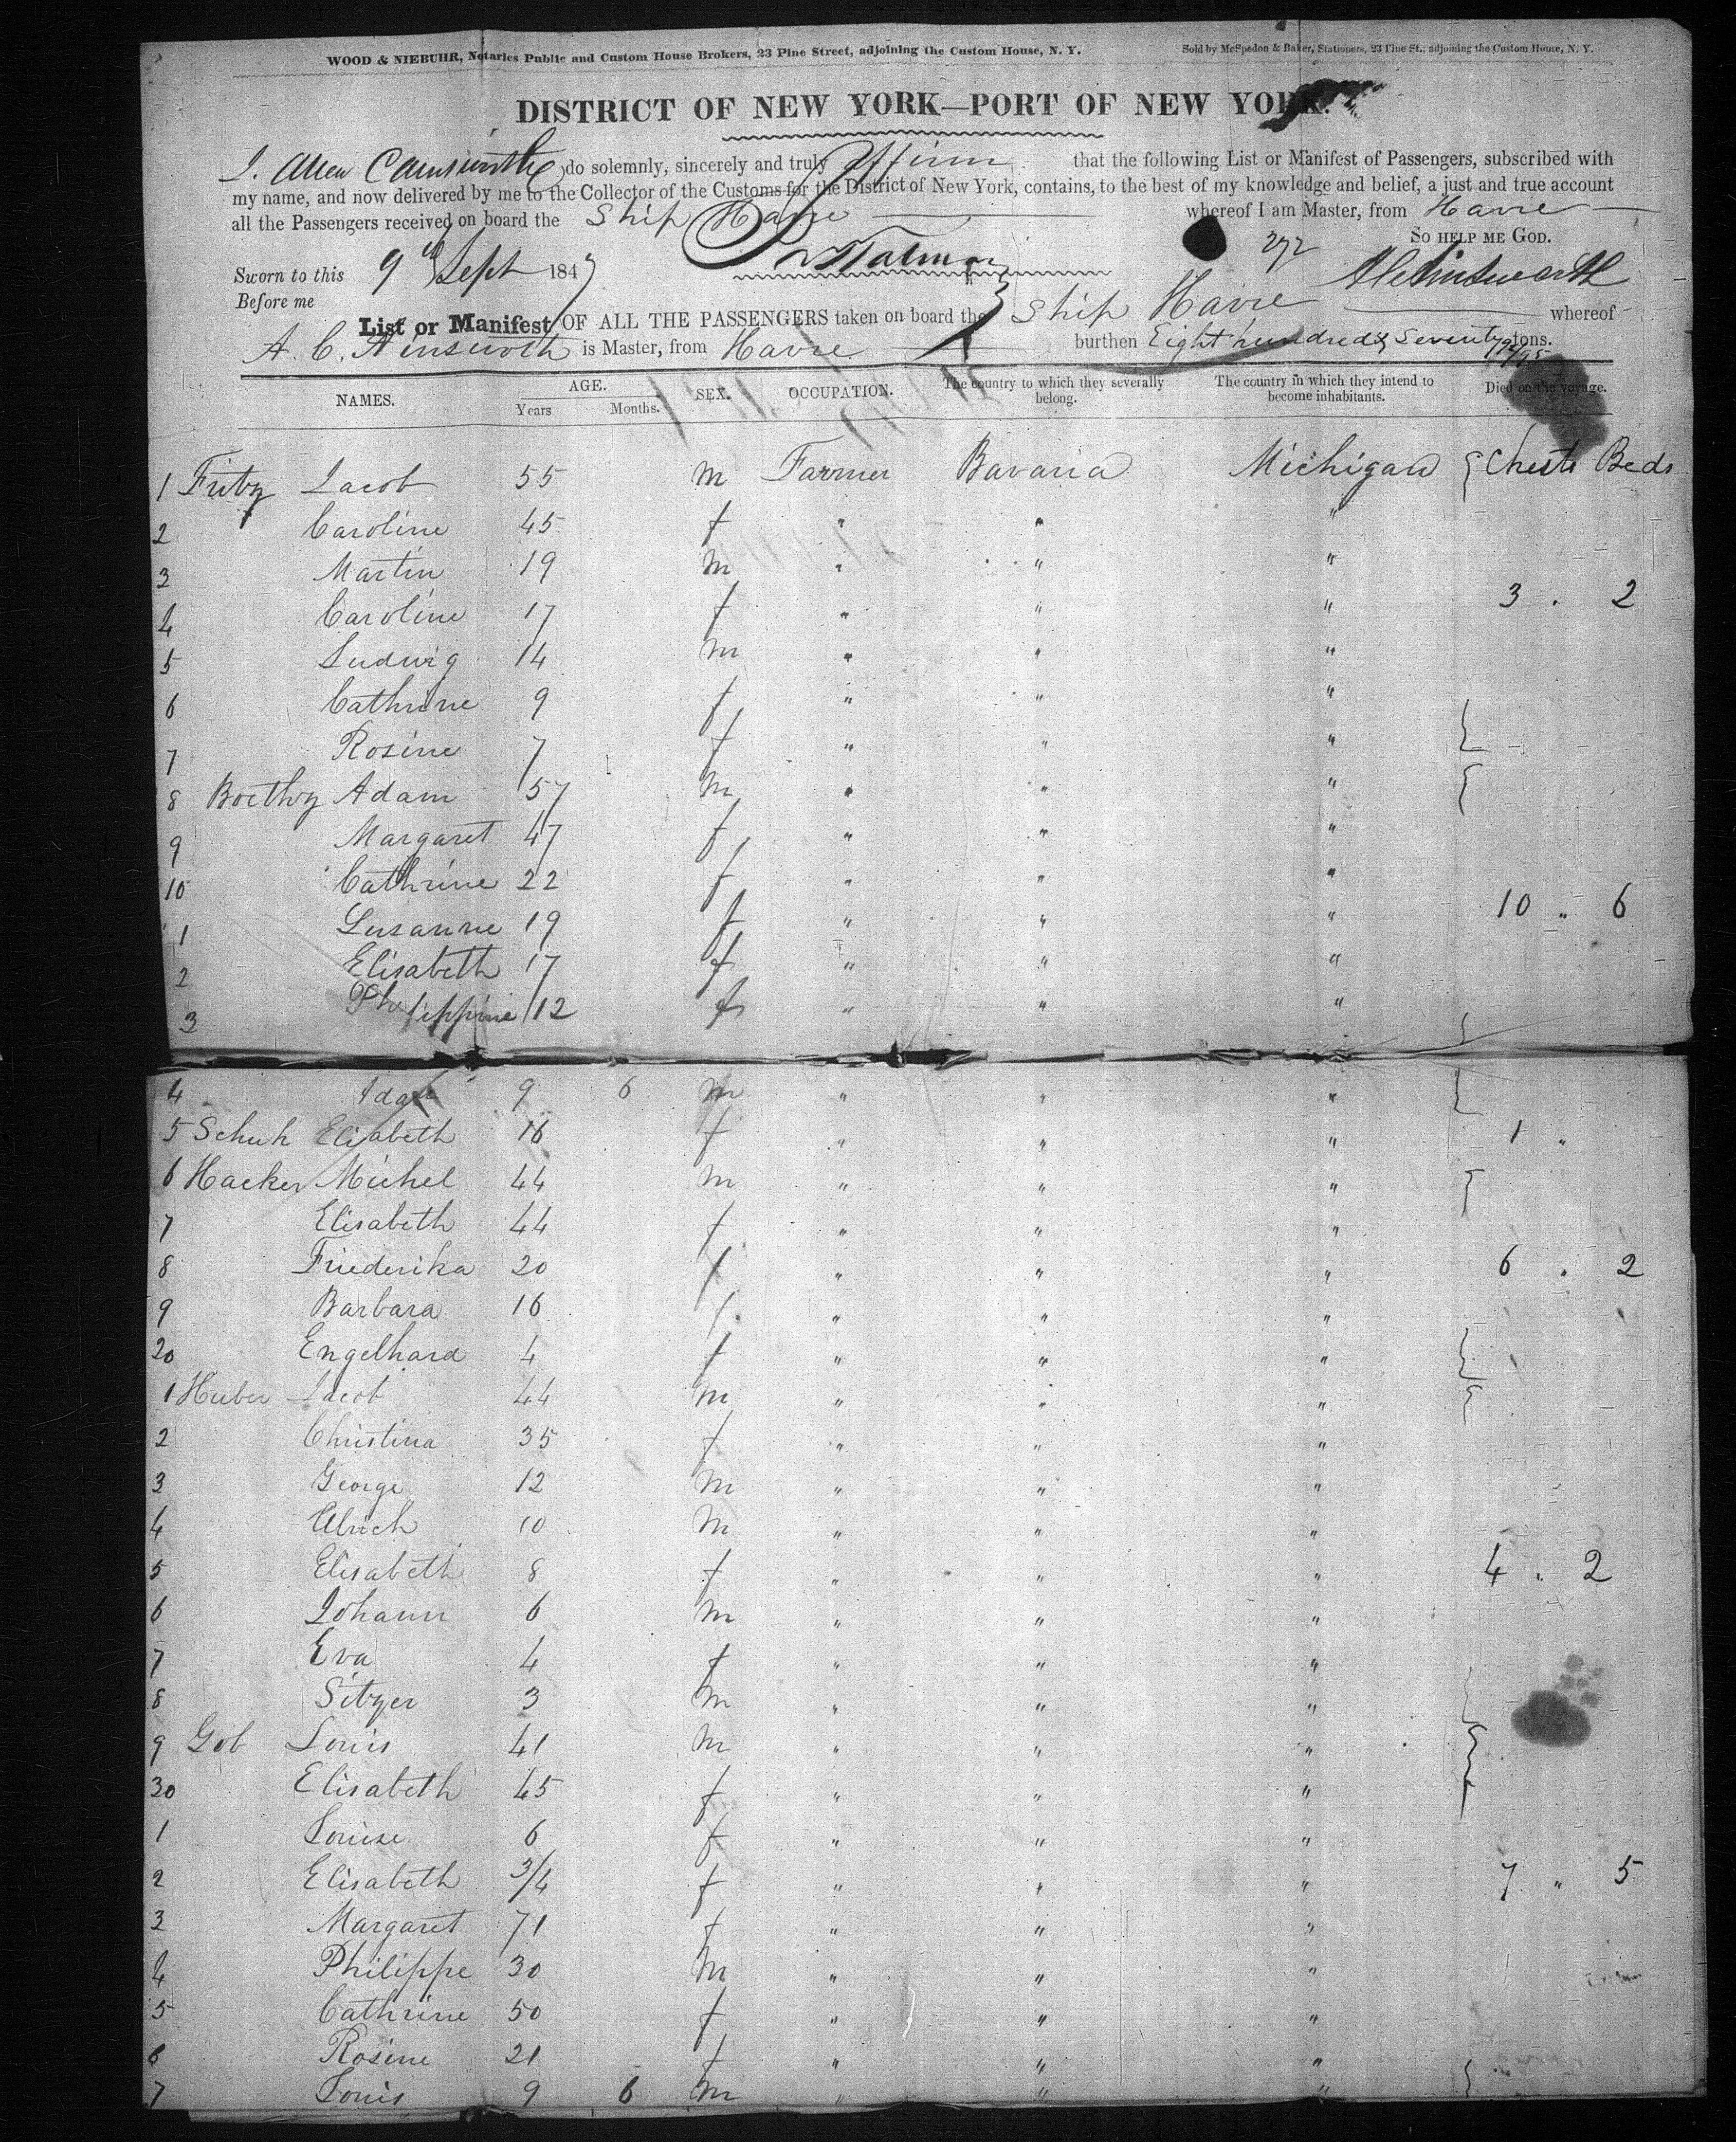 WOOD & NIEBUHR, Notaries Public and Custom House Brokers, 23 Pine Street, adjoining the Custom House, N. Y.
Sold by McSpedon & Baker, Stationers, 23 Pine St., adjoining the Custom House, N. Y.
DISTRICT OF NEW YORK—PORT OF NEW YORK.
I, Allen C Ainsworth do solemnly, sincerely and truly affirm that the following List or Manifest of Passengers, subscribed with
my name, and now delivered by me to the Collector of the Customs for the District of New York, contains, to the best of my knowledge and belief, a just and true account
all the Passengers received on board the Ship Havre whereof I am Master, from Havre
SO HELP ME GOD.
272
Sworn to this 9th Sept 1847
Before me
A C Ainsworth
List or Manifest OF ALL THE PASSENGERS taken on board the Ship Havre whereof
A. C. Ainsworth is Master, from Havre burthen Eight hundred & Seventy tons.
NAMES. AGE. Years Months. SEX. OCCUPATION. The country to which they severally belong. The country in which they intend to become inhabitants. Died on the voyage.
1 Fritz Jacob 55 m Farmer Bavaria Michigan { Chests Beds
2 Caroline 45 f " " "
3 Martin 19 m " " "
4 Caroline 17 f " " " 3 . 2
5 Ludwig 14 m " " "
6 Cathrine 9 f " " "
7 Rosine 7 f " " "
8 Adam 57 m " " "
9 Margaret 47 f " " "
10 Cathrine 22 f " " "
1 Susanne 19 f " " " 10 " 6
2 Elisabeth 17 f " " "
3 Philippine 12 f " " "
4 9 6 m " " "
5 Schuh Elisabeth 16 f " " " 1 "
6 Hacker Michel 44 m " " "
7 Elisabeth 44 f " " "
8 Friederika 20 f " " " 6 " 2
9 Barbara 16 f " " "
20 Engelhard 4 f " " "
1 Huber Jacob 44 m " " "
2 Christina 35 f " " "
3 George 12 m " " "
4 Ulrich 10 m " " "
5 Elisabeth 8 f " " " 4 " 2
6 Johann 6 m " " "
7 Eva 4 f " " "
8 Sitzer 3 m " " "
9 Gob Louis 41 m " " "
30 Elisabeth 45 f " " "
1 Louise 6 f " " "
2 Elisabeth 3/4 f " " " 7 " 5
3 Margaret 71 f " " "
4 Philippe 30 m " " "
5 Cathrine 50 f " " "
6 Rosine 21 f " " "
7 Louis 9 6 m " " "